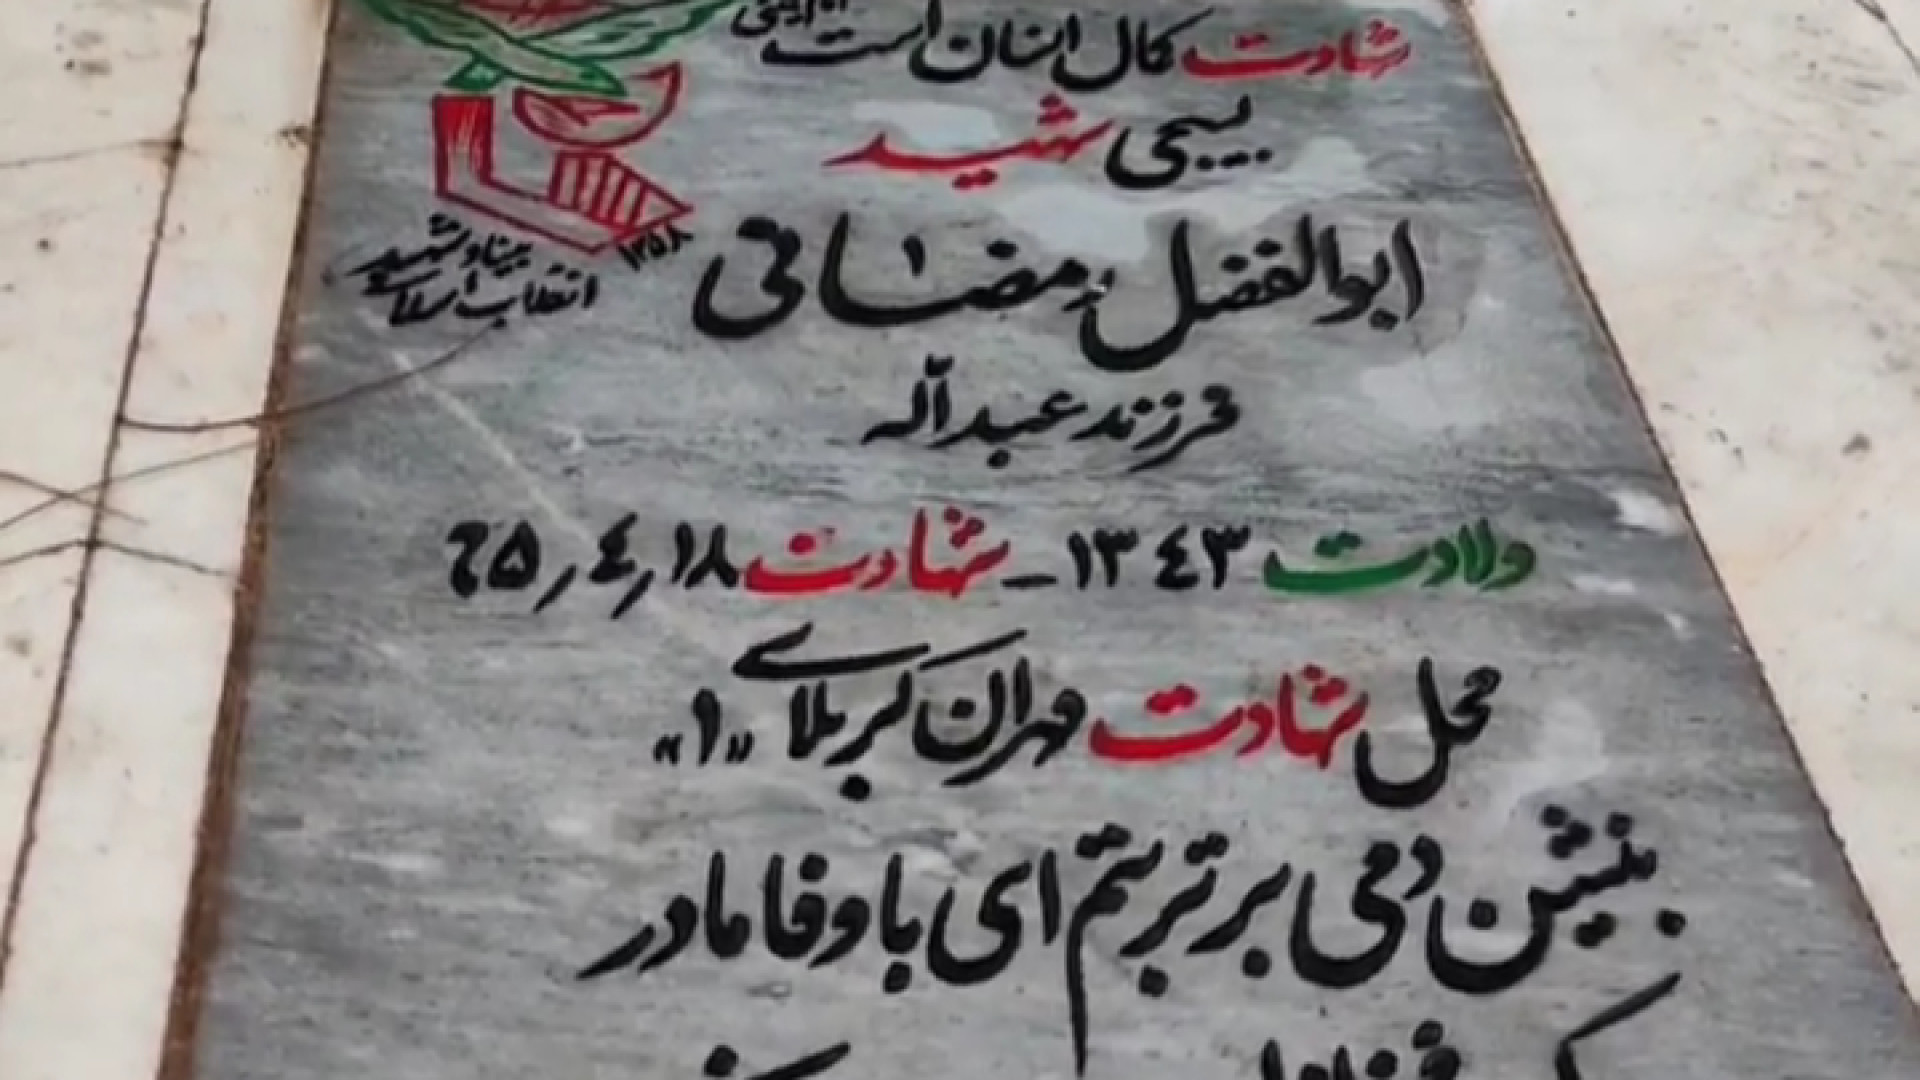 شهادت کمال انسان است
بسیجی شهید
ابوالفضل رمضانی
فرزند عبداله
ولادت ۱۳۴۳ - شهادت ۱۸/۴/۶۵
محل شهادت مهران کربلای «۱»
بنشین دمی بر تربتم ای با وفا مادر
بنیاد شهید
انقلاب اسلامی
۱۳۵۸